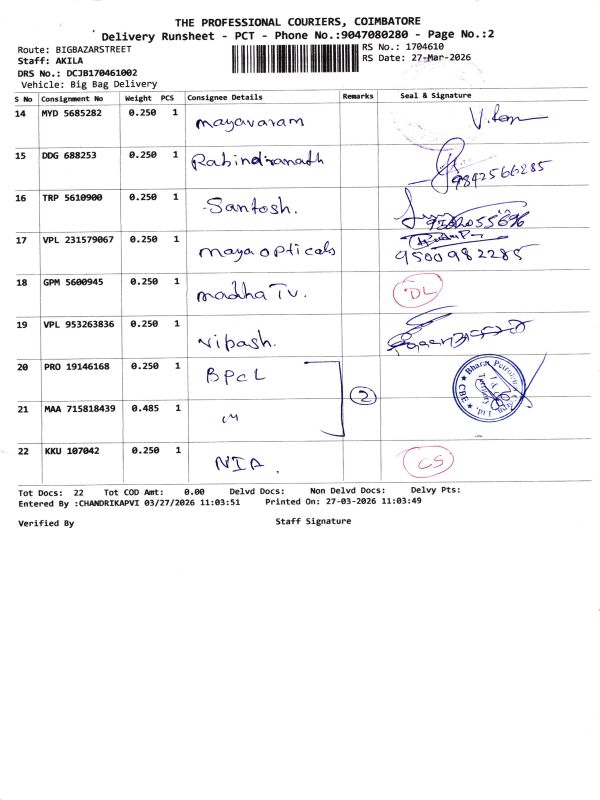 THE PROFESSIONAL COURIERS, COIMBATORE
Delivery Runsheet - PCT - Phone No.:9047080280 - Page No.:2
Route: BIGBAZARSTREET
RS No.: 1704610
Staff: AKILA
RS Date: 27-Mar-2026
DRS No.: DCJB170461002
Vehicle: Big Bag Delivery
S No Consignment No Weight PCS Consignee Details Remarks Seal & Signature
14 MYD 5685282 0.250 1 mayavaram
15 DDG 688253 0.250 1 Rabindranath 9842566285
16 TRP 5610900 0.250 1 Santosh.
17 VPL 231579067 0.250 1 maya opticals 9500982285
18 GPM 5600945 0.250 1 madha Tv. DL
19 VPL 953263836 0.250 1 vipash.
20 PRO 19146168 0.250 1 BPCL 2
21 MAA 715818439 0.485 1
22 KKU 107042 0.250 1 NIA. CS
Tot Docs: 22 Tot COD Amt: 0.00 Delvd Docs: Non Delvd Docs: Delvy Pts:
Entered By :CHANDRIKAPVI 03/27/2026 11:03:51 Printed On: 27-03-2026 11:03:49
Verified By Staff Signature